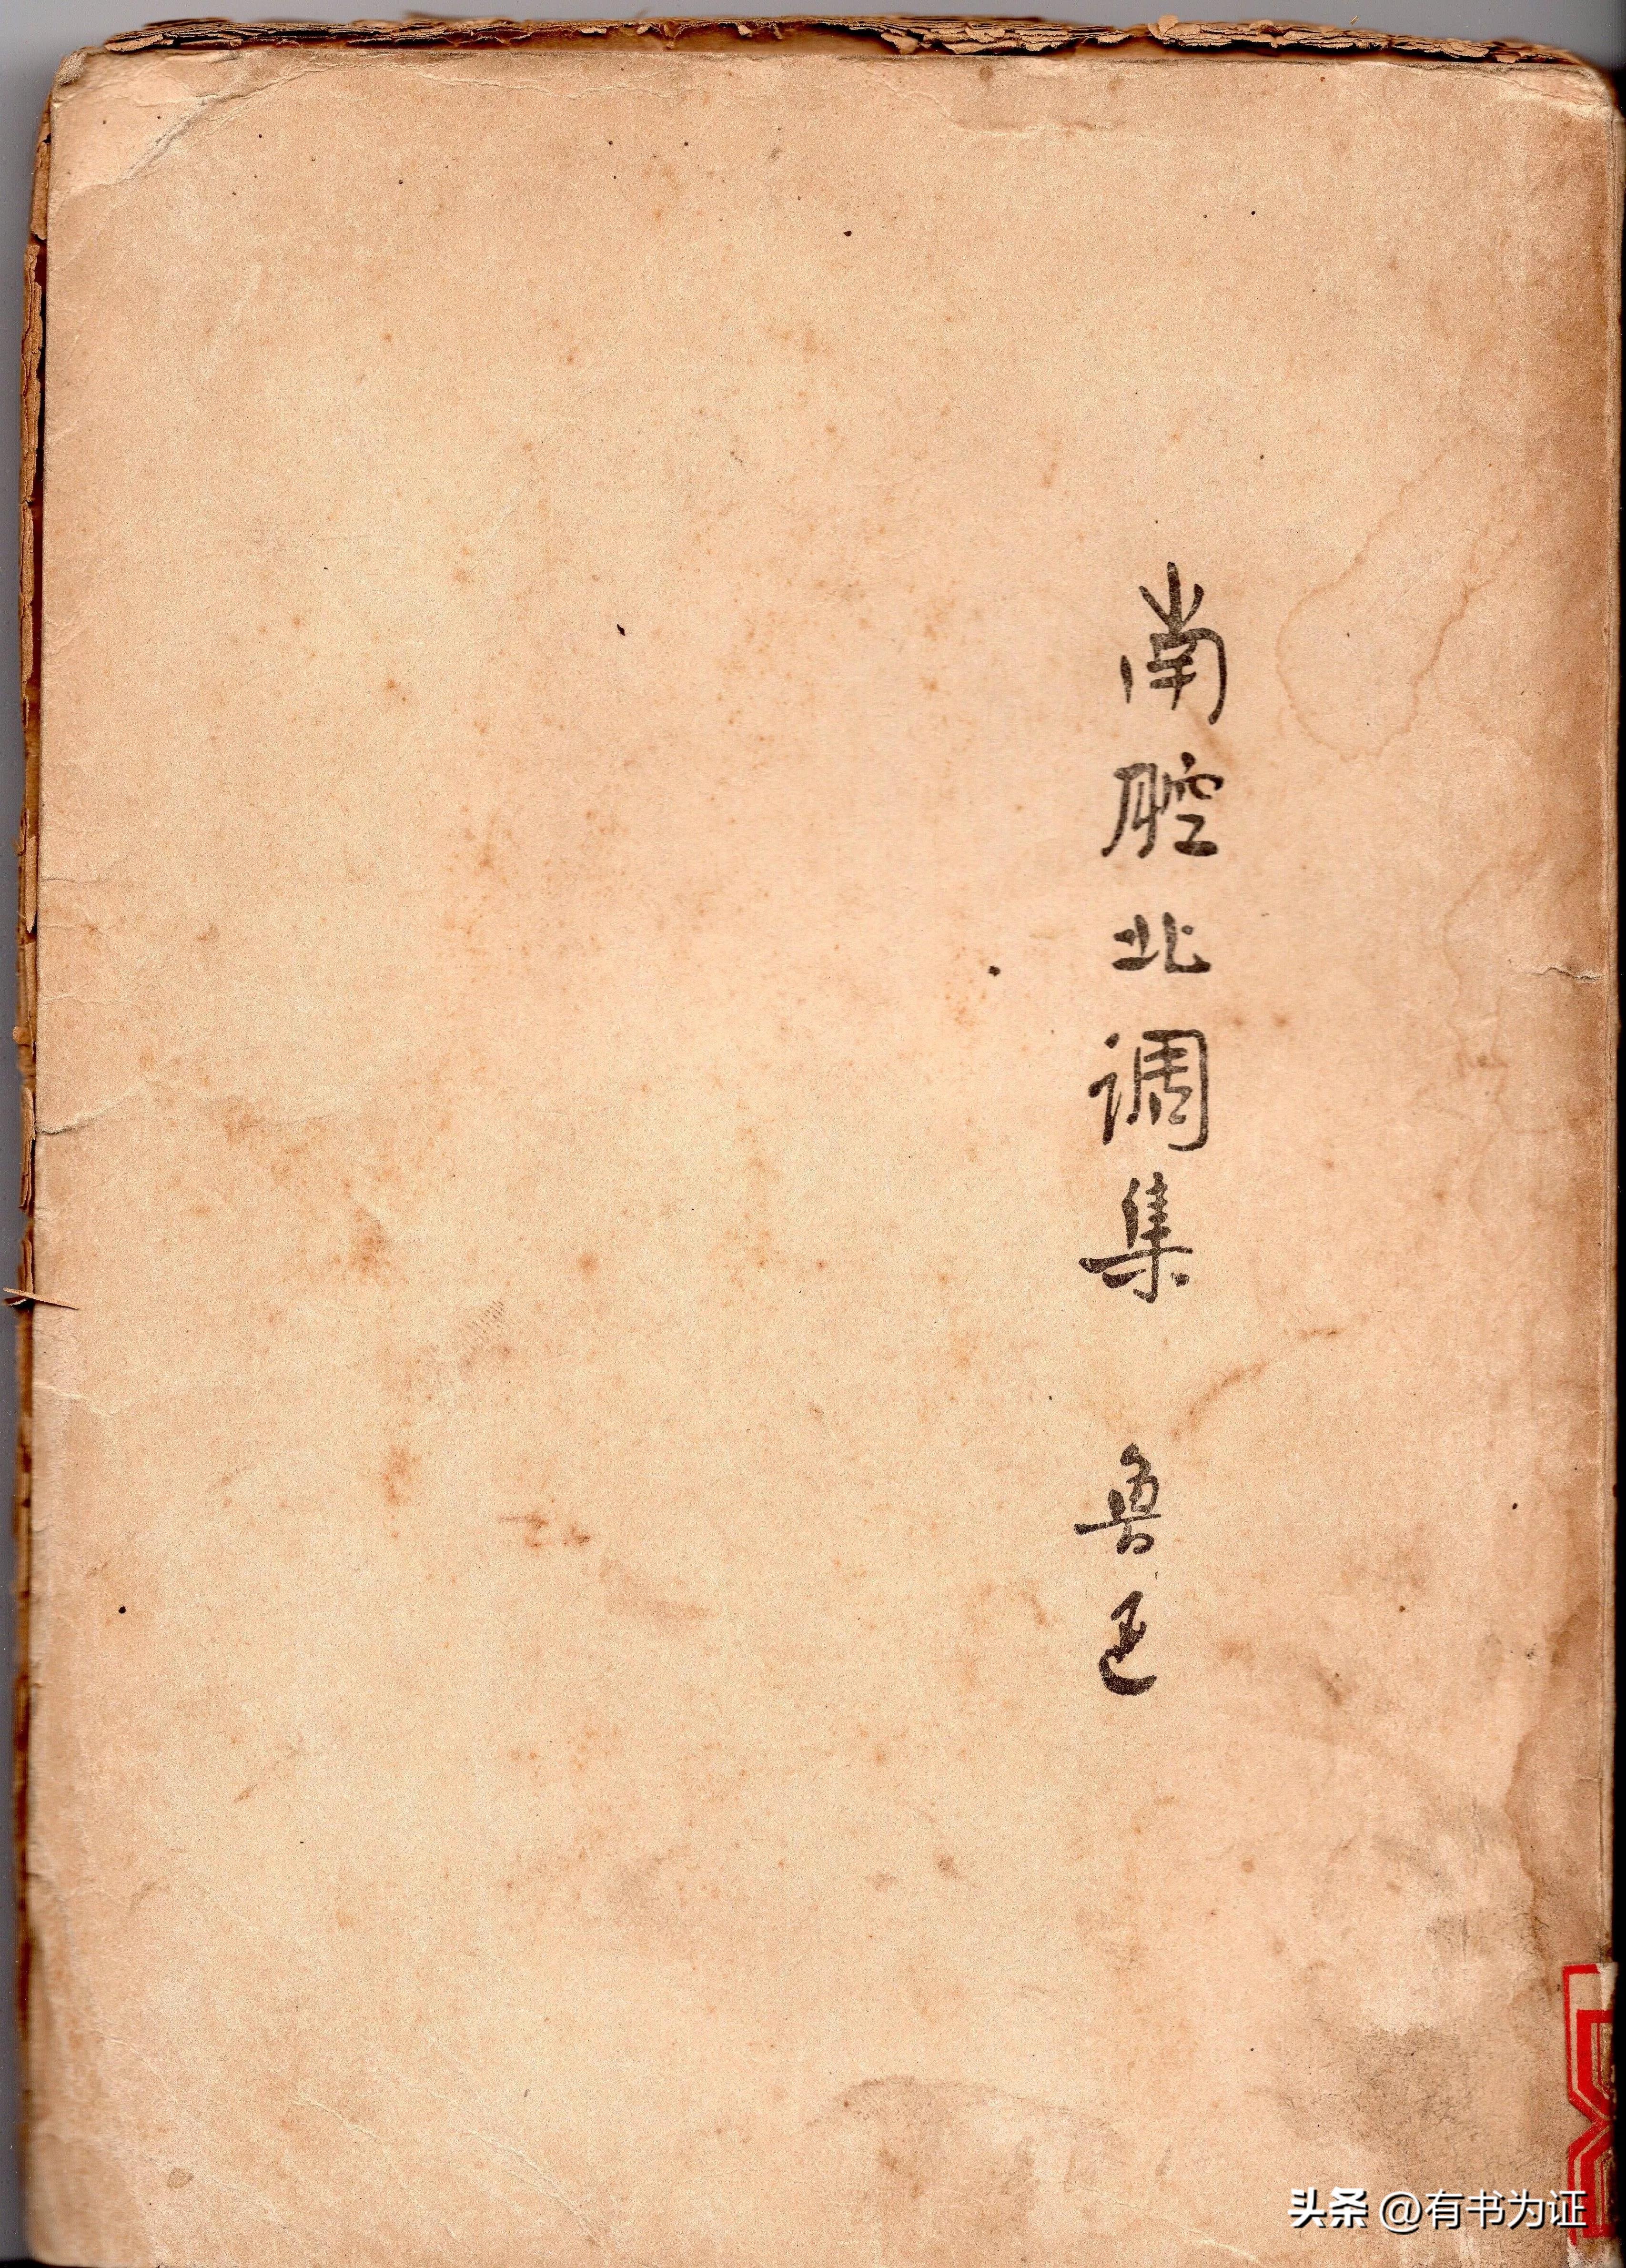 南腔北调集 鲁迅
头条 @有书为证